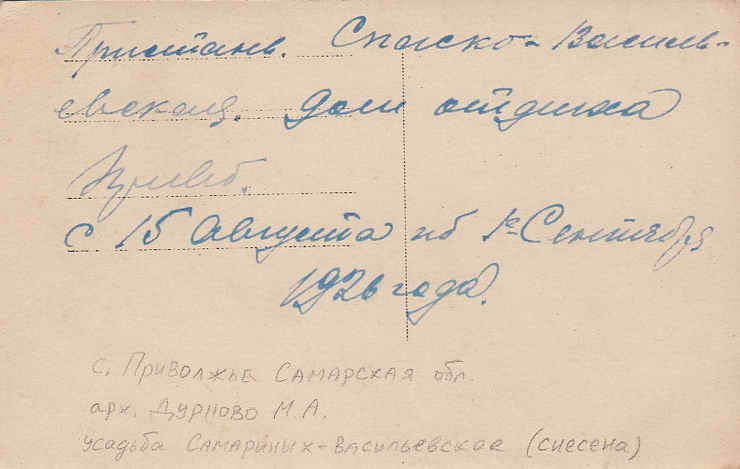 Пристань. Спасско-Василь-
евская. Дом отдыха

с 15 Августа по 1е Сентября
1926 года.
с. Приволжье Самарская обл.
арх. Дурново М.А.
усадьба Самариных-Васильевское (снесена)